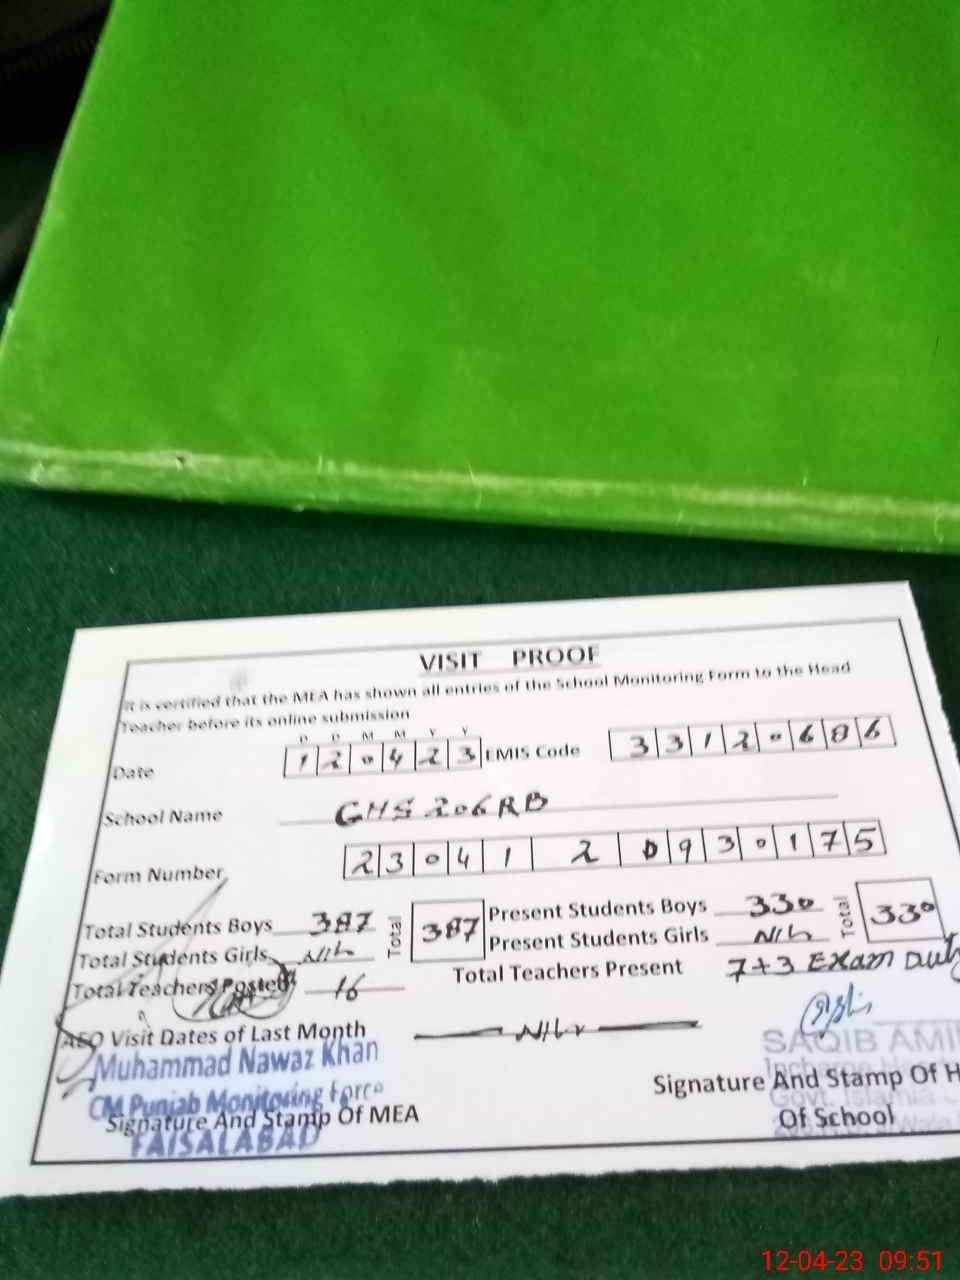 VISIT PROOF
It is certified that the MEA has shown all entries of the School Monitoring Form to the Head
Teacher before its online submission
D D M M Y Y
Date 1 2 0 4 2 3 EMIS Code 3 3 1 2 0 6 8 6
School Name GHS 206 RB
Form Number 2 3 0 4 1 2 0 9 3 0 1 7 5
Total Students Boys 387 Total 387 Present Students Boys 330 Total 330
Total Students Girls Nil Present Students Girls Nil
Total Teachers Posted 16 Total Teachers Present 7+3 Exam Duty
AEO Visit Dates of Last Month Nil
Muhammad Nawaz Khan
CM Punjab Monitoring Force
Signature And Stamp Of MEA
FAISALABAD
SAQIB AMI
Signature And Stamp Of H
Govt. Islamia
Of School
12-04-23 09:51